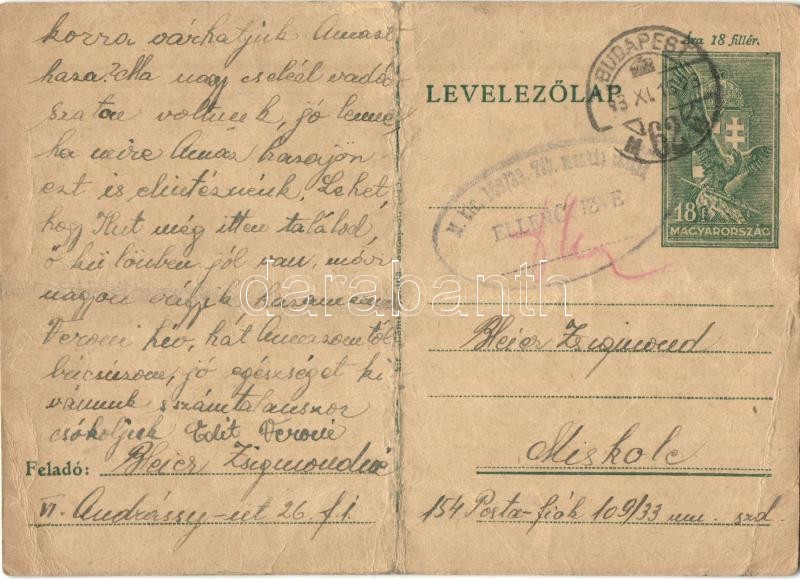 korra várhatjuk Amast
haza? Ma nagy cseléd vadá
szaton voltunk, jó lenne
ha mire Amas hazajön
ezt is elintéznénk. Lehet,
hogy Hut még itten találod
ő különben jól van, már
nagyon vágyik hazamenni
Veroni hív, hát Amaszomtól
búcsúzom, jó egészséget ki
vánunk s számtalanszor
csókoljuk Edit Veroni
Feladó: Bleier Zsigmondné
VI. Andrássy-ut 26. f. 1.
Ára 18 fillér.
LEVELEZŐLAP
BUDAPEST
62
18 f
MAGYARORSZÁG
M. kir.
ELLENŐRIZVE
Bleier Zsigmond
Miskolc
154 Posta-fiók 109/33 mu. szd.
darabanth